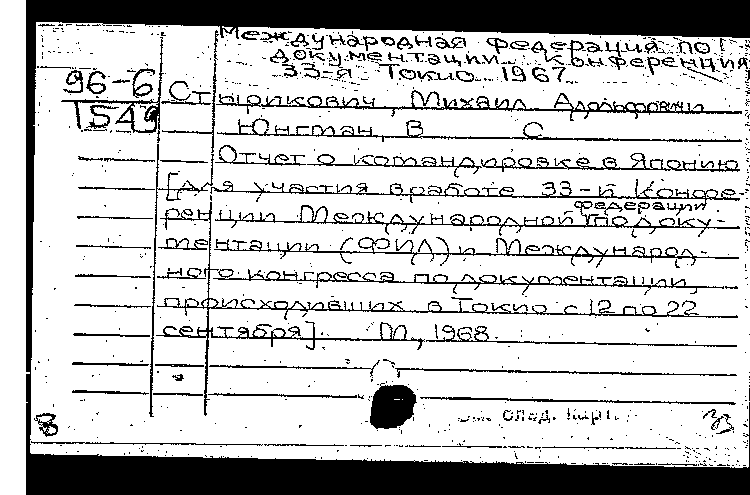 Международная федерация по
документации. Конференция
33-я Токио 1967
96-6
1549
Стырикович, Михаил Адольфович
Юнгман, В С
Отчет о командировке в Японию
[для участия в работе 33-й Конфе-
федерации
ренции Международной по доку-
ментации (ФИД) и Международ-
ного конгресса по документации,
происходивших в Токио с 12 по 22
сентября]. М., 1968.
См. след. карт.
8
33